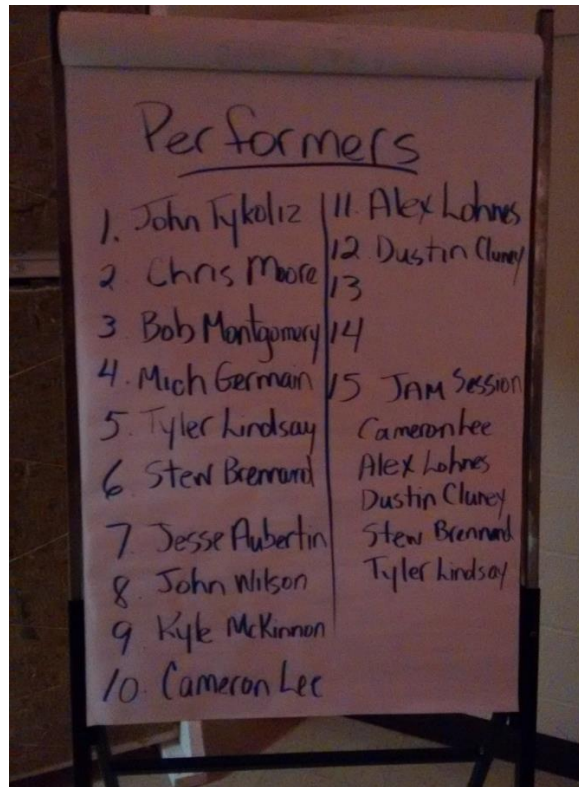 Performers
1. John Tykoliz
2 Chris Moore
3. Bob Montgomery
4. Mich German
5. Tyler Lindsay
6 Stew Brennand
7. Jesse Aubertin
8. John Wilson
9 Kyle McKinnon
10. Cameron Lee
11. Alex Lohnes
12. Dustin Cluney
13
14
15 JAM Session
Cameron Lee
Alex Lohnes
Dustin Cluney
Stew Brennand
Tyler Lindsay